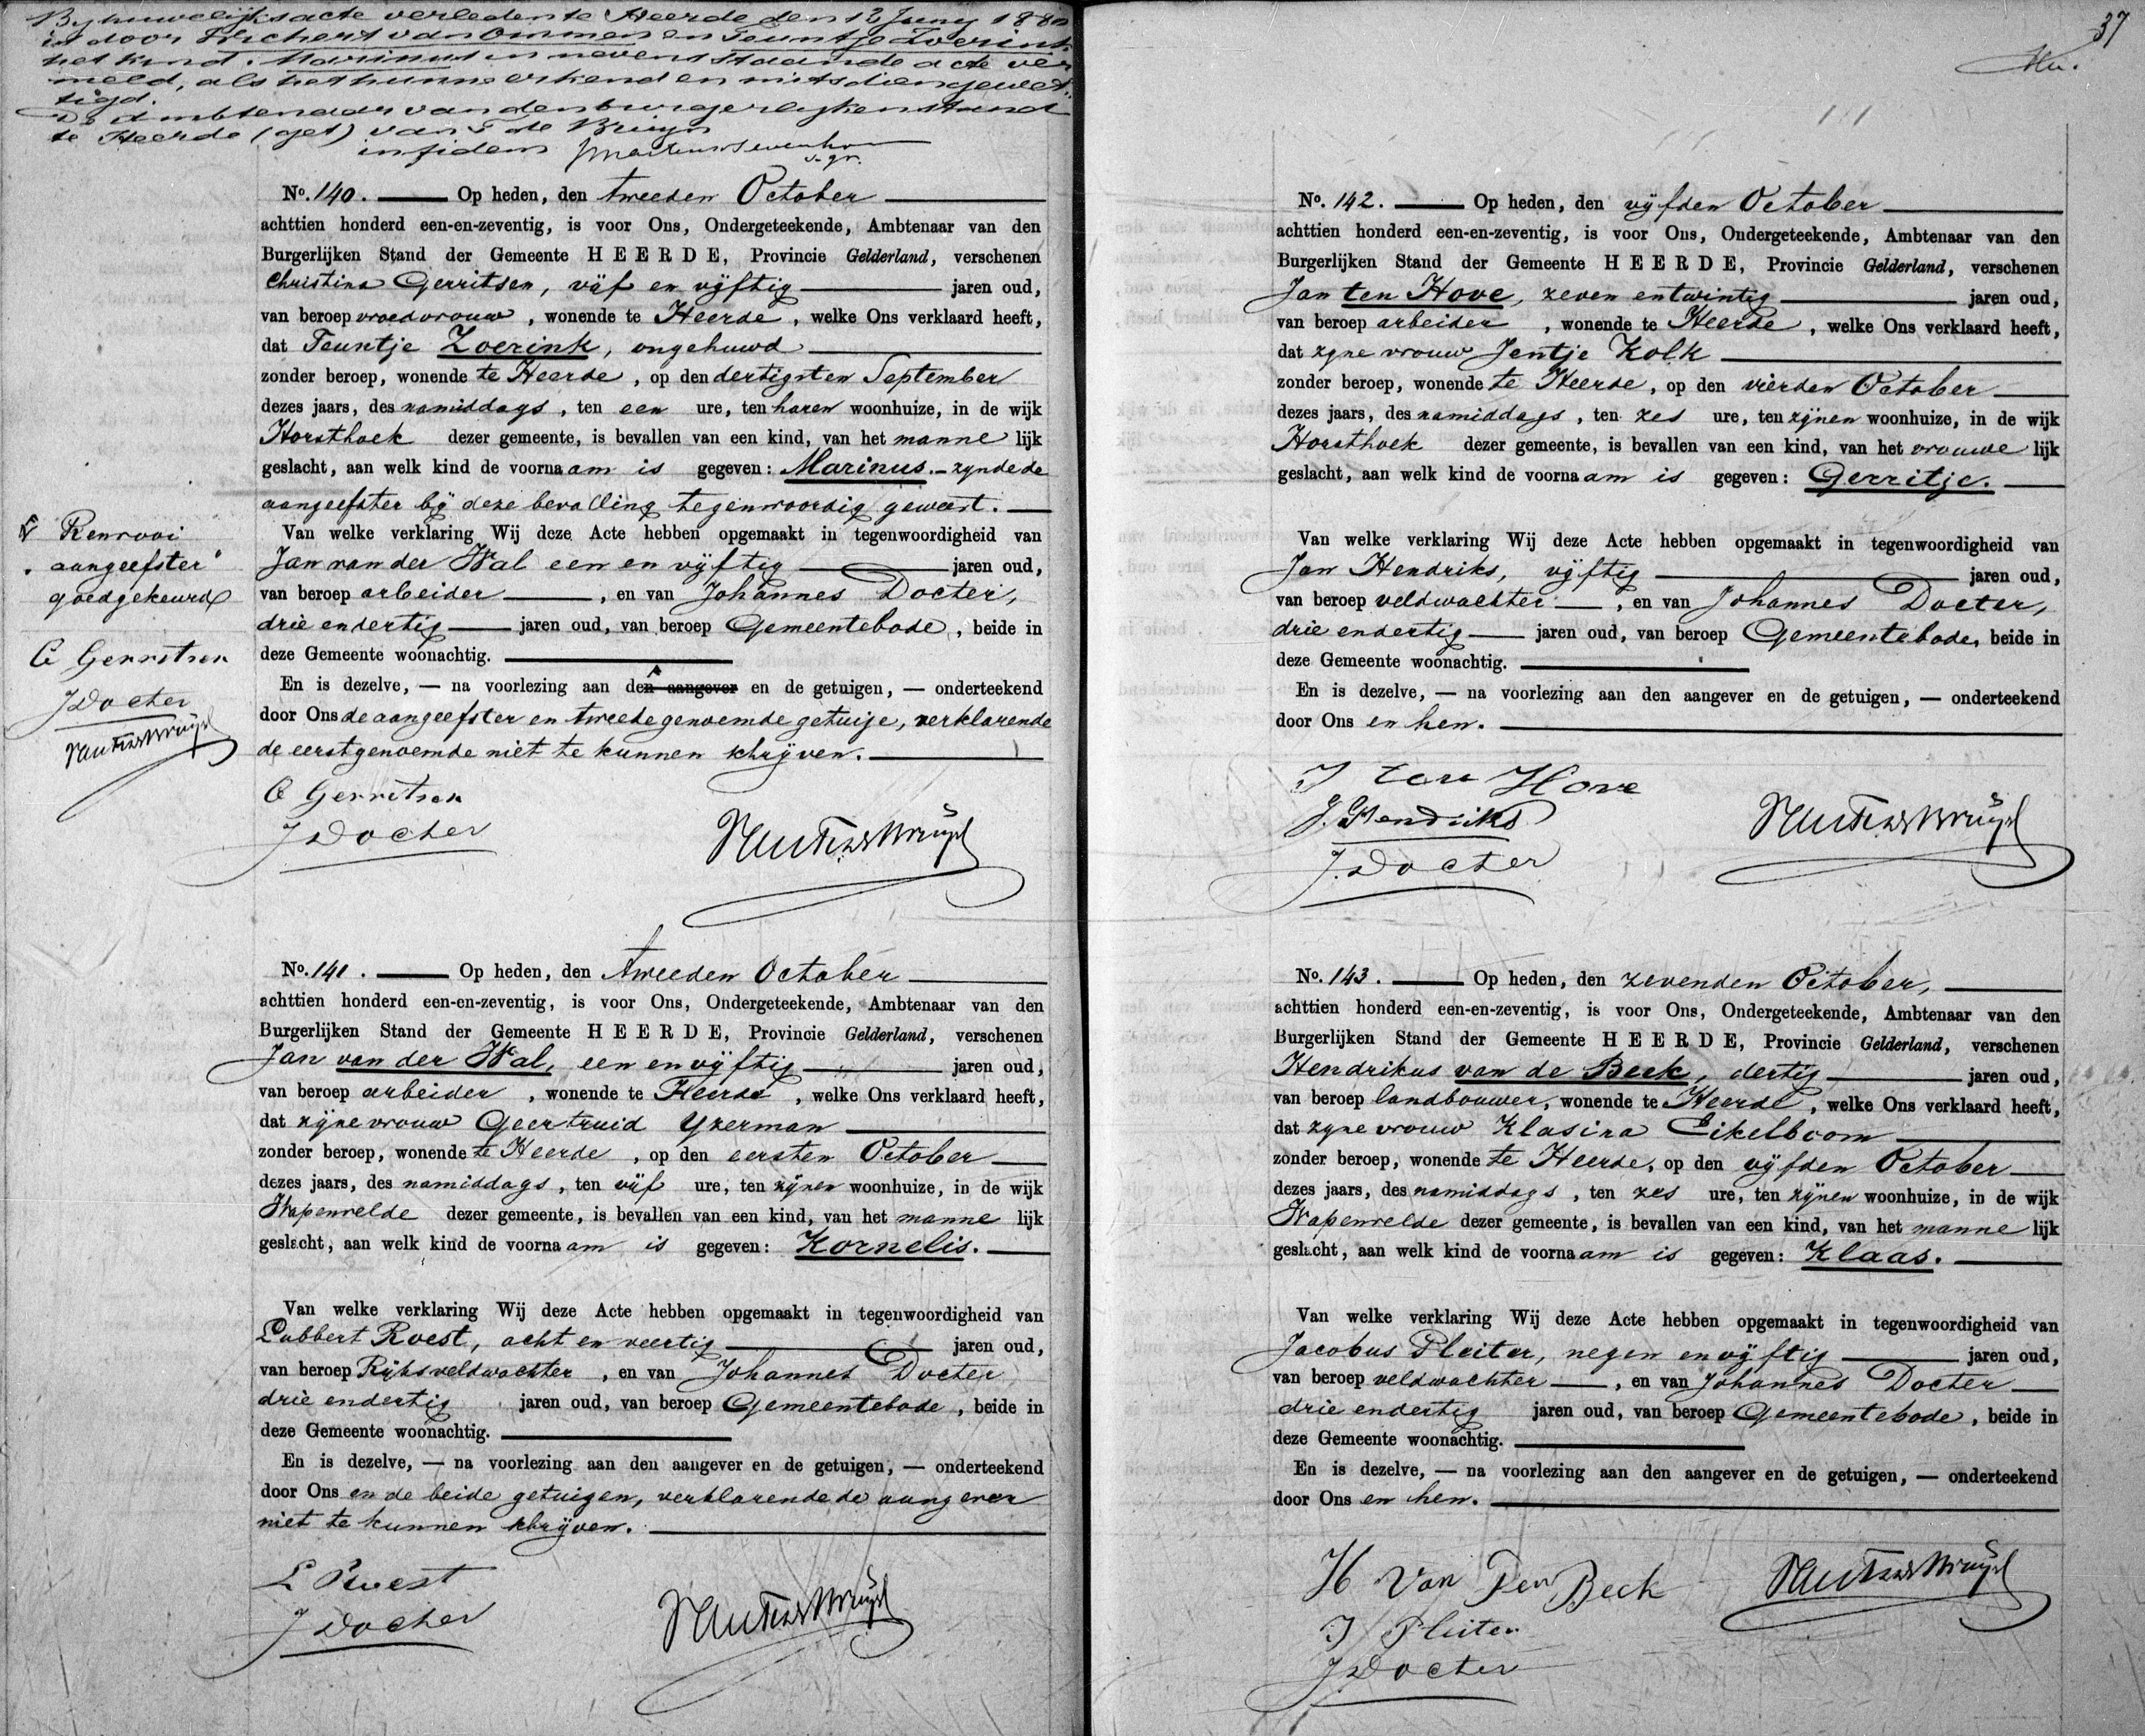 By huwelijksacte verleden te Heerde den 12 Juny 1880
is door Wichert van Ommen en Teuntje Zoerink
het kind Marinus in nevenstaande acte ver
meld, als het hunne erkend en mitsdien gewet„
tigd.
De Ambtenaar van den burgerlijken stand
te Heerde (get) van T de Bruijn
in fidem
s. gr.
No. 140. Op heden, den tweeden October
achttien honderd een-en-zeventig, is voor Ons, Ondergeteekende, Ambtenaar van den
Burgerlijken Stand der Gemeente HEERDE, Provincie Gelderland, verschenen
Christina Gerritsen, vijf en vijftig jaren oud,
van beroep vroedvrouw, wonende te Heerde, welke Ons verklaard heeft,
dat Teuntje Zoerink, ongehuwd
zonder beroep, wonende te Heerde, op den dertigsten September
dezes jaars, des namiddags, ten een ure, ten haren woonhuize, in de wijk
Horsthoek dezer gemeente, is bevallen van een kind, van het mannelijk
geslacht, aan welk kind de voornaam is gegeven: Marinus. – zynde de
aangeefster bij deze bevalling tegenwoordig geweest.
Van welke verklaring Wij deze Acte hebben opgemaakt in tegenwoordigheid van
Jan van der Wal een en vijftig jaren oud,
van beroep arbeider, en van Johannes Docter,
drie en dertig jaren oud, van beroep Gemeentebode, beide in
deze Gemeente woonachtig.
En is dezelve, — na voorlezing aan den aangever en de getuigen, — onderteekend
door Ons de aangeefster en tweedegenoemde getuige, verklarende
de eerstgenoemde niet te kunnen schrijven.
C Gerritsen
J Docter
Renvooi
„aangeefster"
goedgekeurd
C Gerritsen
J Docter
No. 141. Op heden, den tweeden October
achttien honderd een-en-zeventig, is voor Ons, Ondergeteekende, Ambtenaar van den
Burgerlijken Stand der Gemeente HEERDE, Provincie Gelderland, verschenen
Jan van der Wal, een en vijftig jaren oud,
van beroep arbeider, wonende te Heerde, welke Ons verklaard heeft,
dat zijne vrouw Geertruid Yzerman
zonder beroep, wonende te Heerde, op den eersten October
dezes jaars, des namiddags, ten vijf ure, ten zijnen woonhuize, in de wijk
Wapenvelde dezer gemeente, is bevallen van een kind, van het mannelijk
geslacht, aan welk kind de voornaam is gegeven: Kornelis.
Van welke verklaring Wij deze Acte hebben opgemaakt in tegenwoordigheid van
Lubbert Roest, acht en veertig jaren oud,
van beroep Rijksveldwachter, en van Johannes Docter
drie en dertig jaren oud, van beroep Gemeentebode, beide in
deze Gemeente woonachtig.
En is dezelve, — na voorlezing aan den aangever en de getuigen, — onderteekend
door Ons en de beide getuigen, verklarende de aangever
niet te kunnen schrijven.
L Roest
J Docter
37
No. 142. Op heden, den vijfden October
achttien honderd een-en-zeventig, is voor Ons, Ondergeteekende, Ambtenaar van den
Burgerlijken Stand der Gemeente HEERDE, Provincie Gelderland, verschenen
Jan ten Hove, zeven en twintig jaren oud,
van beroep arbeider, wonende te Heerde, welke Ons verklaard heeft,
dat zyne vrouw Jentje Kolk
zonder beroep, wonende te Heerde, op den vierden October
dezes jaars, des namiddags, ten zes ure, ten zijnen woonhuize, in de wijk
Horsthoek dezer gemeente, is bevallen van een kind, van het vrouwelijk
geslacht, aan welk kind de voornaam is gegeven: Gerritje.
Van welke verklaring Wij deze Acte hebben opgemaakt in tegenwoordigheid van
Jan Hendriks, vijftig jaren oud,
van beroep veldwachter, en van Johannes Docter,
drie en dertig jaren oud, van beroep Gemeentebode, beide in
deze Gemeente woonachtig.
En is dezelve, — na voorlezing aan den aangever en de getuigen, — onderteekend
door Ons en hen.
J ten Hove
J. Hendriks
J. Docter
No. 143. Op heden, den zevenden October,
achttien honderd een-en-zeventig, is voor Ons, Ondergeteekende, Ambtenaar van den
Burgerlijken Stand der Gemeente HEERDE, Provincie Gelderland, verschenen
Hendrikus van de Beek, dertig jaren oud,
van beroep landbouwer, wonende te Heerde, welke Ons verklaard heeft,
dat zyne vrouw Klasina Eikelboom
zonder beroep, wonende te Heerde, op den vijfden October
dezes jaars, des namiddags, ten zes ure, ten zijnen woonhuize, in de wijk
Wapenvelde dezer gemeente, is bevallen van een kind, van het mannelijk
geslacht, aan welk kind de voornaam is gegeven: Klaas.
Van welke verklaring Wij deze Acte hebben opgemaakt in tegenwoordigheid van
Jacobus Pleiter, negen en vijftig jaren oud,
van beroep veldwachter, en van Johannes Docter
drie en dertig jaren oud, van beroep Gemeentebode, beide in
deze Gemeente woonachtig.
En is dezelve, — na voorlezing aan den aangever en de getuigen, — onderteekend
door Ons en hen.
H Van Den Beek
J Pleiter
J Docter